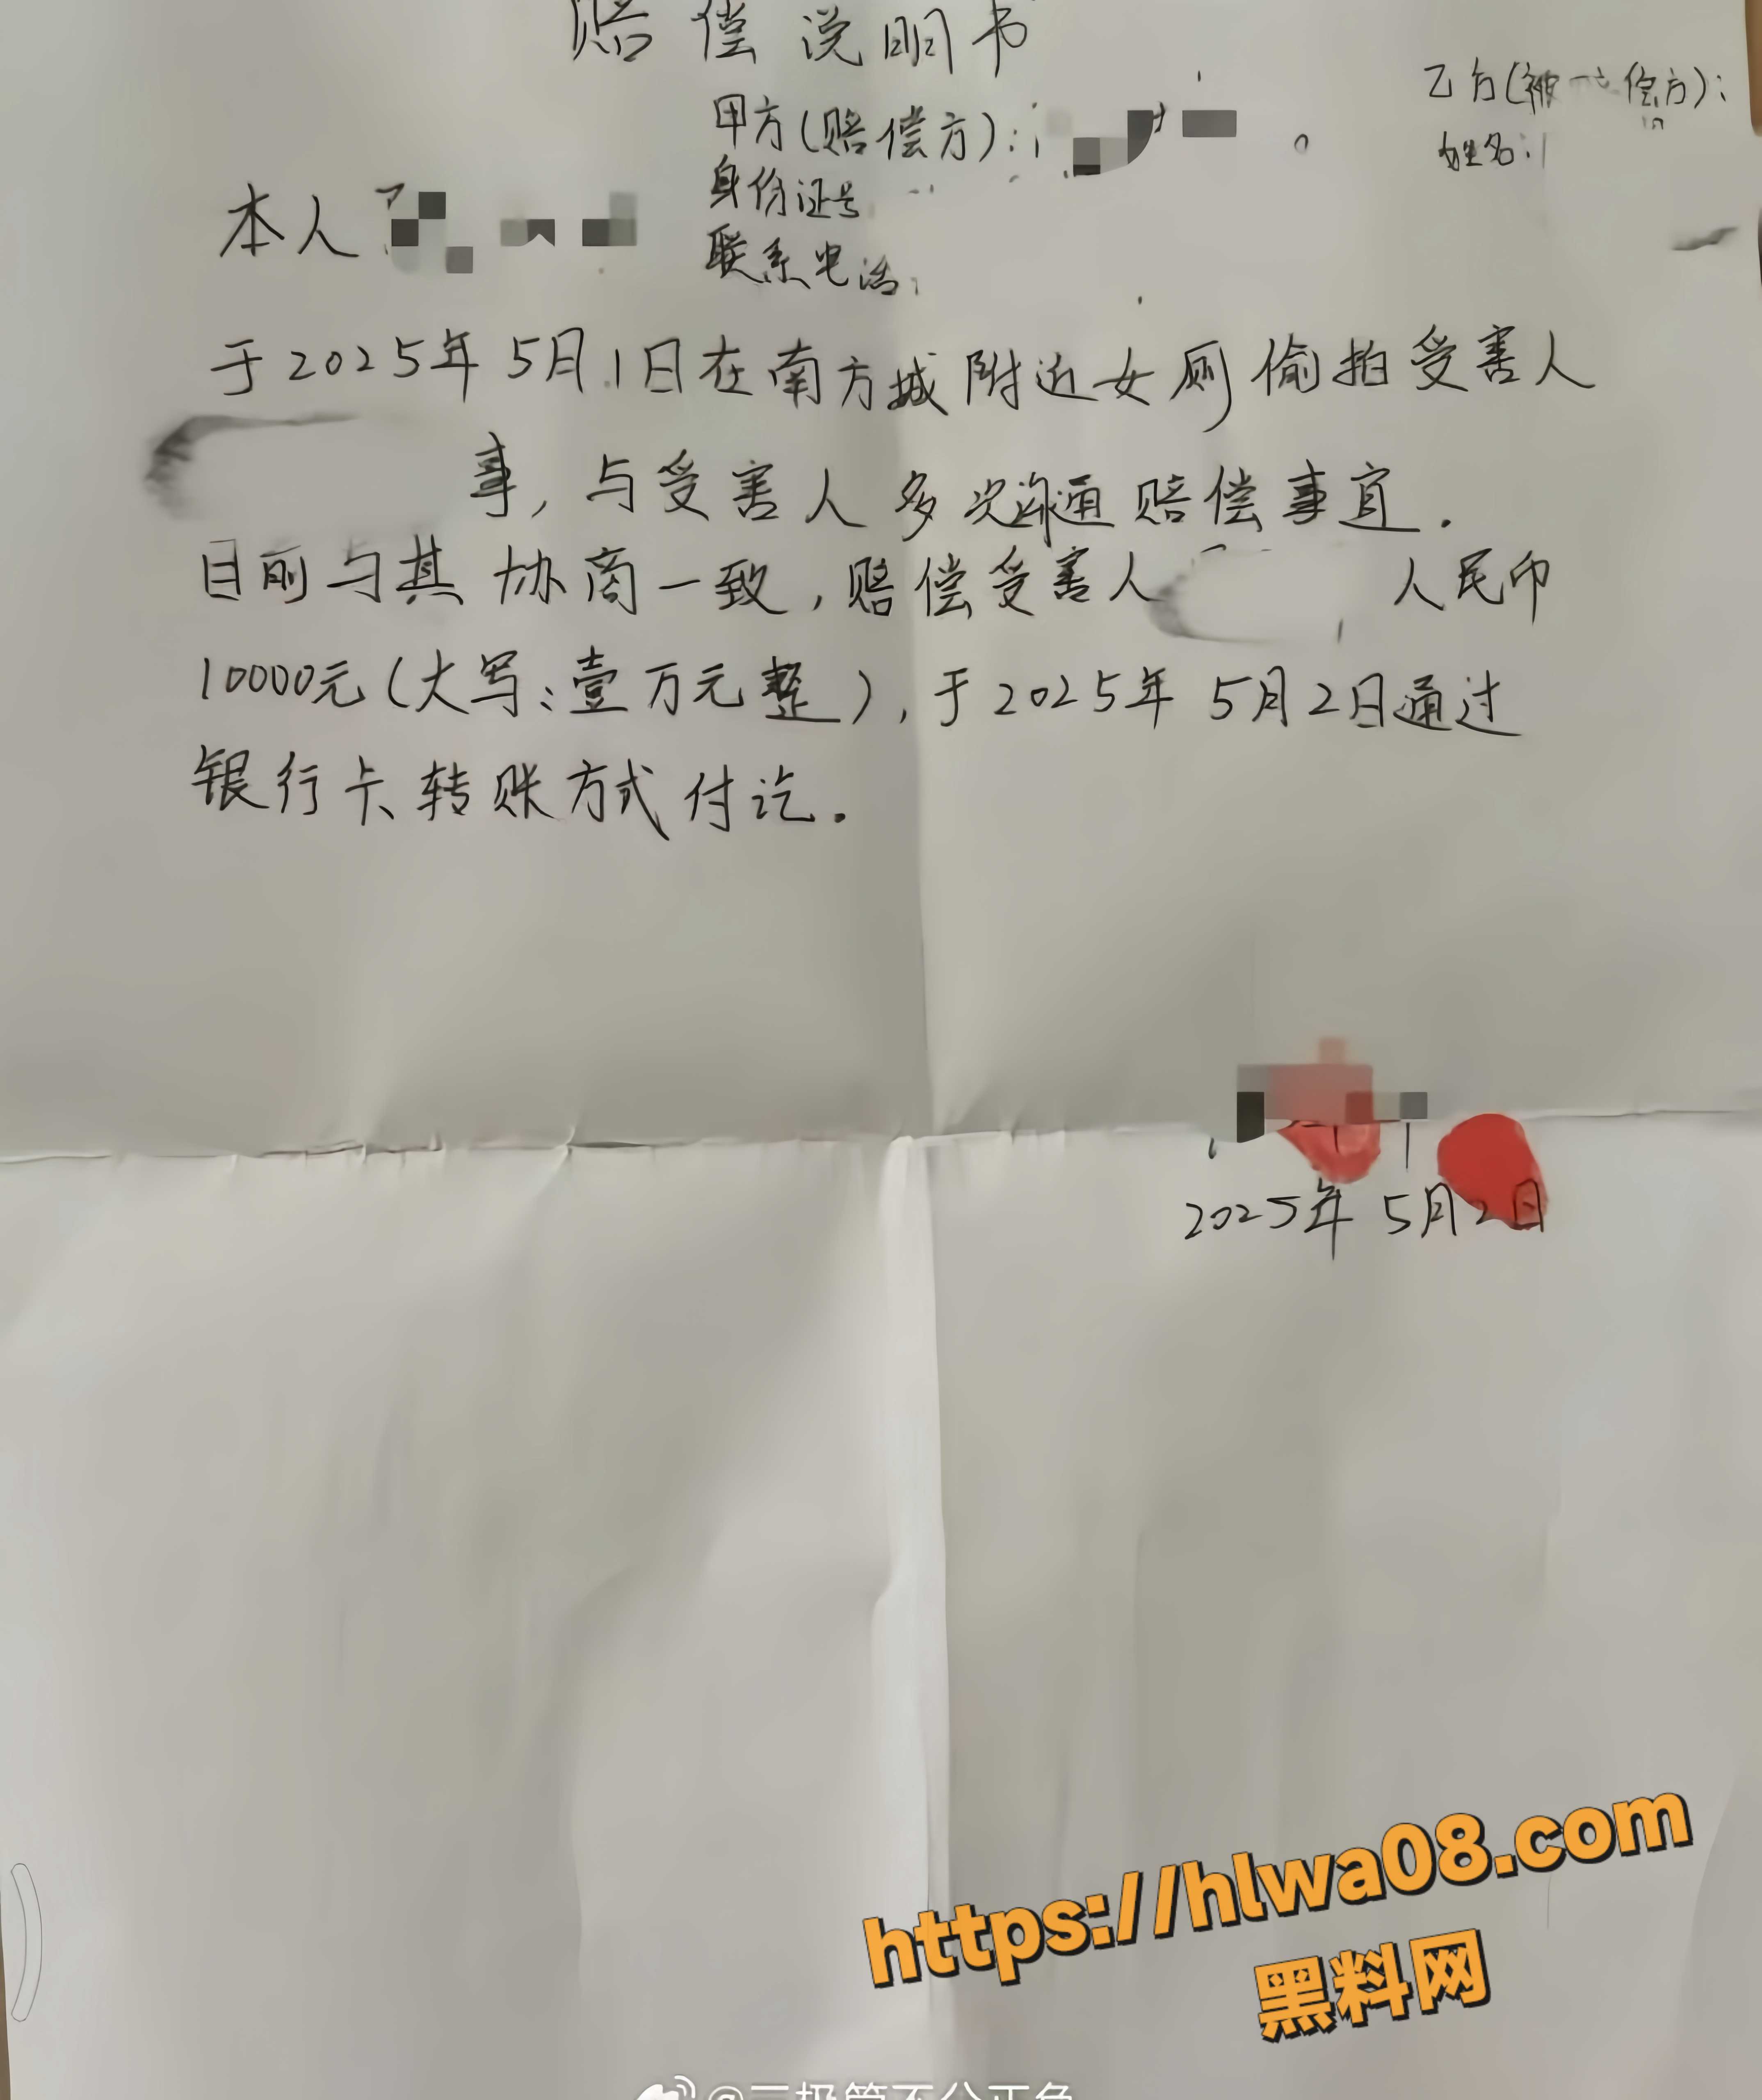 赔偿说明书
甲方(赔偿方):
身份证号
联系电话:
乙方(被 偿方):
姓名:
本人
于2025年5月1日在南方城附近女厕偷拍受害人
事,与受害人多次沟通赔偿事宜.
目前与其协商一致,赔偿受害人 人民币
10000元(大写:壹万元整),于2025年5月2日通过
银行卡转账方式付讫.
2025年5月2日
https://hlwa08.com
黑料网